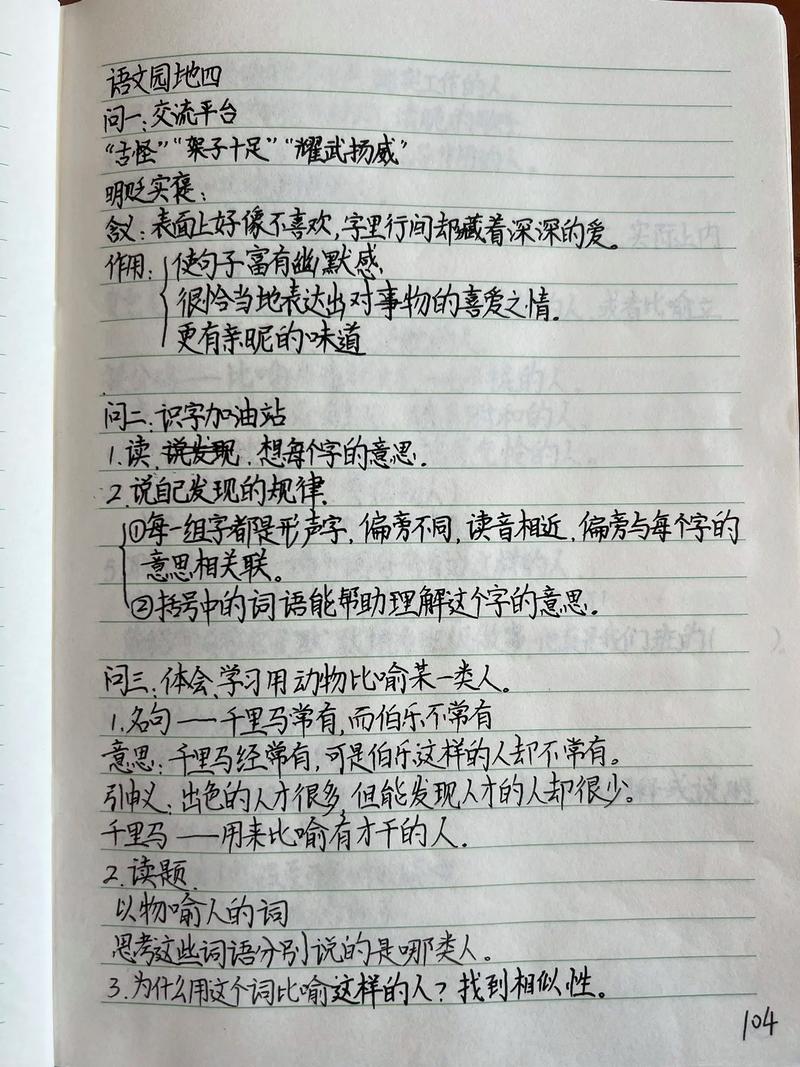 语文园地四
问一:交流平台
“古怪”“架子十足”“耀武扬威”
明贬实褒:
含义:表面上好像不喜欢,字里行间却藏着深深的爱。
作用:使句子富有幽默感
很恰当地表达出对事物的喜爱之情.
更有亲昵的味道
问二:识字加油站
1.读,说发现,想每个字的意思.
2.说自己发现的规律.
①每一组字都是形声字,偏旁不同,读音相近,偏旁与每个字的
意思相关联。
②括号中的词语能帮助理解这个字的意思.
问三:体会、学习用动物比喻某一类人。
1.名句——千里马常有,而伯乐不常有
意思:千里马经常有,可是伯乐这样的人却不常有。
引申义:出色的人才很多,但能发现人才的人却很少。
千里马——用来比喻有才干的人.
2.读题.
以物喻人的词
思考这些词语分别说的是哪类人.
3.为什么用这个词比喻这样的人?找到相似性。
104